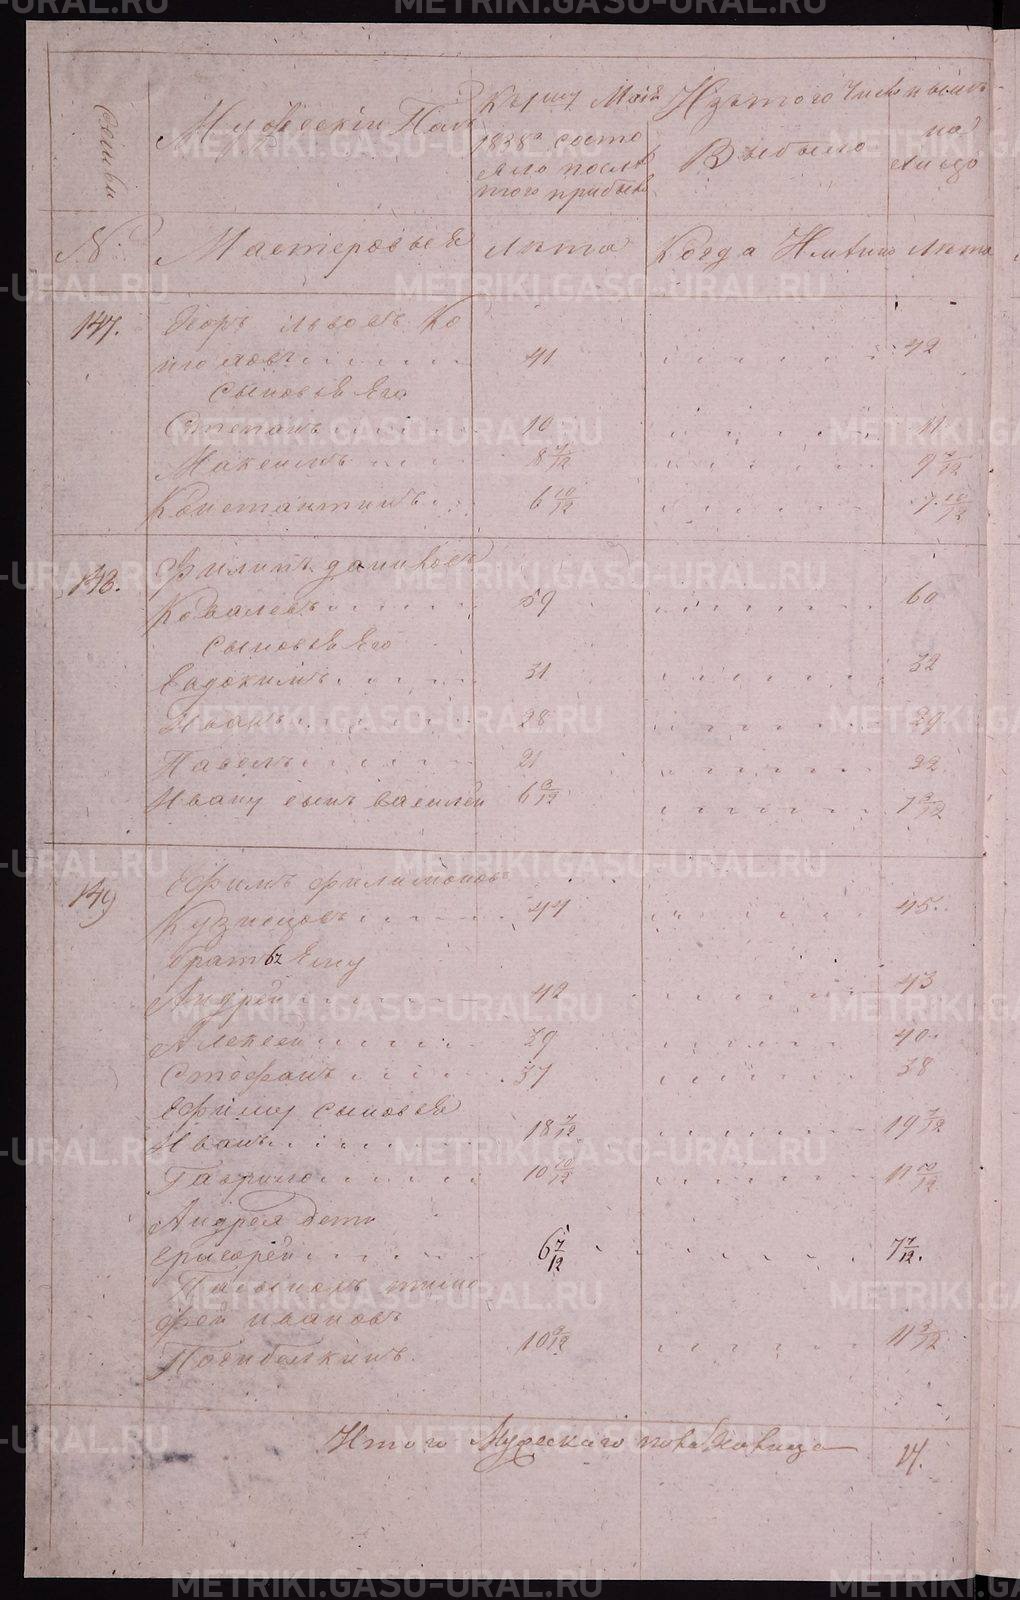 Семьи
Мужескій Полъ
К 1му Маія
1838 состо
яло после
того прибыло
Изъ того числа нынѣ
Выбыло
на
лицо
№
Мастеровые
лѣта
Когда Именно
лѣта
147.
Егоръ Львовъ Ко
41
42
Сыновья его
Степанъ 10 11
Максимъ 8 7/12 9 7/12
Константинъ 6 10/12 7 10/12
148.
Филипъ
Ковалевъ 59 60
Сыновья его
Евдокимъ 31 32
Иванъ 28 29
Павелъ 21 22
Ивану сынъ Василей 6 9/12 7 9/12
149
Ефимъ Филимоновъ
Кузнецовъ 44 45
братья Ему
Андрей 42 43
Алексей 39 40
Стефанъ 37 38
Ефиму Сыновья
Иванъ 18 7/12 19 7/12
Гаврило 10 10/12 11 10/12
Андрея дети
Григорей 6 7/12 7 7/12.
Тимо
фей Ивановъ
Погибелкинъ 10 9/12 11 9/12
Итого Мужескаго пола на лицо 14.
METRIKI.GASO-URAL.RU